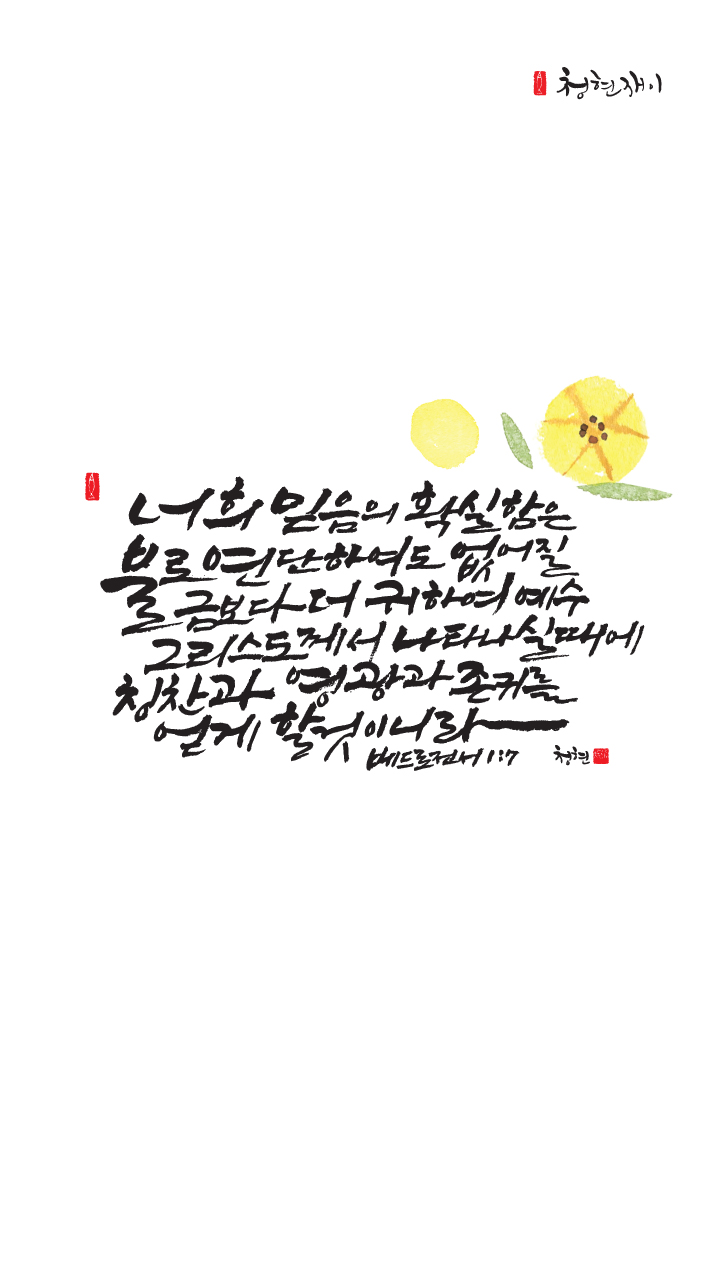 청현재이
너희 믿음의 확실함은
불로 연단하여도 없어질
금보다 더 귀하여 예수
그리스도께서 나타나실때에
칭찬과 영광과 존귀를
얻게 할것이니라
베드로전서 1:7
청현